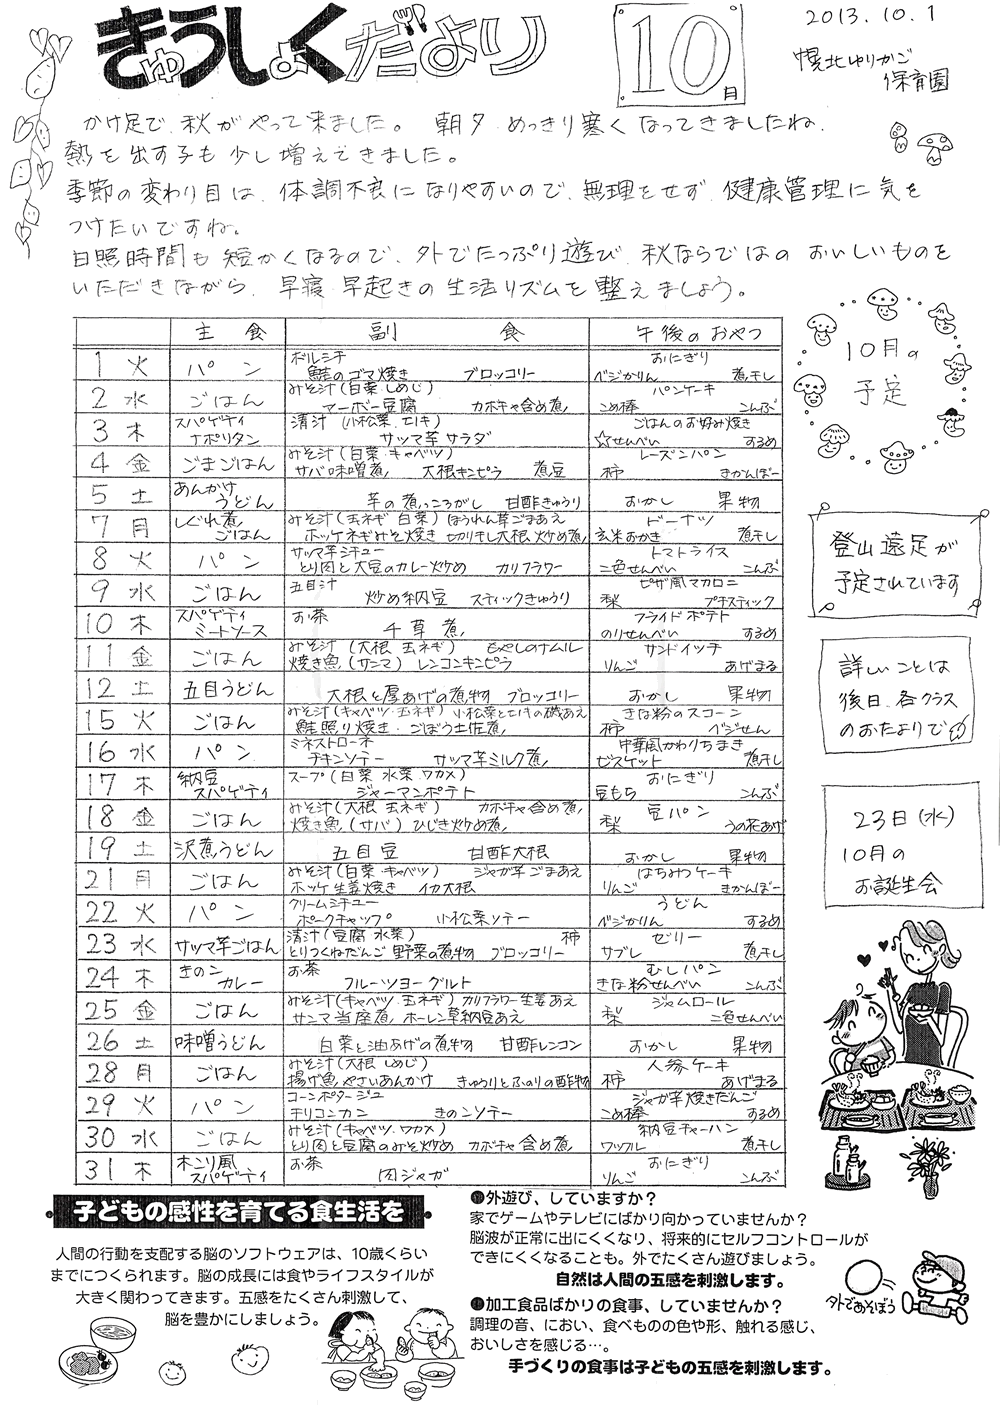 きゅうしょくだより
10月
2013.10.1
幌北ゆりかご
保育園
かけ足で、秋がやって来ました。 朝夕、めっきり寒くなってきましたね。
熱を出す子も少し増えてきました。
季節の変わり目は、体調不良になりやすいので、無理をせず、健康管理に気を
つけたいですね。
日照時間も短かくなるので、外でたっぷり遊び、秋ならではのおいしいものを
いただきながら、早寝早起きの生活リズムを整えましょう。
主食 副食 午後のおやつ
1 火 パン ボルシチ 鮭のゴマ焼き ブロッコリー おにぎり ベジかりん 煮干し
2 水 ごはん みそ汁(白菜 しめじ) マーボー豆腐 カボチャ含め煮 パンケーキ こめ棒 こんぶ
3 木 スパゲティナポリタン 清汁(小松菜 エノキ) サツマ芋サラダ ごはんのお好み焼き ☆せんべい するめ
4 金 ごまごはん みそ汁(白菜・キャベツ) サバ味噌煮 大根キンピラ 煮豆 レーズンパン 柿 きかんぼー
5 土 あんかけうどん 芋の煮っころがし 甘酢きゅうり おかし 果物
7 月 しぐれ煮ごはん みそ汁(玉ネギ 白菜) ほうれん草ごまあえ ホッケネギみそ焼き 切り干し大根炒め煮 ドーナツ 玄米おかき 煮干し
8 火 パン サツマ芋シチュー とり肉と大豆のカレー炒め カリフラワー トマトライス 二色せんべい こんぶ
9 水 ごはん 五目汁 炒め納豆 スティックきゅうり ピザ風マカロニ 梨 プチスティック
10 木 スパゲティミートソース お茶 千草煮 フライドポテト のりせんべい するめ
11 金 ごはん みそ汁(大根 玉ネギ) もやしのナムル 焼き魚(サンマ) レンコンキンピラ サンドイッチ りんご あげまる
12 土 五目うどん 大根と厚あげの煮物 ブロッコリー おかし 果物
15 火 ごはん みそ汁(キャベツ・玉ネギ) 小松菜とエノキの磯あえ 鮭照り焼き・ごぼう土佐煮 きな粉のスコーン 柿 ベジせん
16 水 パン ミネストローネ チキンソテー サツマ芋ミルク煮 中華風かわりちまき ビスケット 煮干し
17 木 納豆スパゲティ スープ(白菜 水菜 ワカメ) ジャーマンポテト おにぎり 豆もち こんぶ
18 金 ごはん みそ汁(大根 玉ネギ) カボチャ含め煮 焼き魚(サバ) ひじき炒め煮 豆パン 梨 うの花あげ
19 土 沢煮うどん 五目豆 甘酢大根 おかし 果物
21 月 ごはん みそ汁(白菜・キャベツ) ジャガ芋ごまあえ ホッケ生姜焼き イカ大根 はちみつケーキ りんご きかんぼー
22 火 パン クリームシチュー ポークチャップ 小松菜ソテー うどん ベジかりん するめ
23 水 サツマ芋ごはん 清汁(豆腐 水菜) 柿 とりつくねだんご 野菜の煮物 ブロッコリー ゼリー サブレ 煮干し
24 木 きのこカレー お茶 フルーツヨーグルト むしパン きな粉せんべい こんぶ
25 金 ごはん みそ汁(キャベツ・玉ネギ) カリフラワー生姜あえ サンマ当座煮 ホーレン草納豆あえ ジャムロール 梨 二色せんべい
26 土 味噌うどん 白菜と油あげの煮物 甘酢レンコン おかし 果物
28 月 ごはん みそ汁(大根 しめじ) 揚げ魚やさいあんかけ きゅうりとふのりの酢物 人参ケーキ 柿 あげまる
29 火 パン コーンポタージュ チリコンカン きのこソテー ジャガ芋焼きだんご こめ棒 するめ
30 水 ごはん みそ汁(キャベツ・ワカメ) とり肉と豆腐のみそ炒め カボチャ含め煮 納豆チャーハン ワッフル 煮干し
31 木 本コリ風スパゲティ お茶 肉ジャガ おにぎり りんご こんぶ
10月の
予定
登山遠足が
予定されています
詳しいことは
後日、各クラス
のおたよりで
23日(水)
10月の
お誕生会
子どもの感性を育てる食生活を
人間の行動を支配する脳のソフトウェアは、10歳くらい
までにつくられます。脳の成長には食やライフスタイルが
大きく関わってきます。五感をたくさん刺激して、
脳を豊かにしましょう。
❶外遊び、していますか？
家でゲームやテレビにばかり向かっていませんか？
脳波が正常に出にくくなり、将来的にセルフコントロールが
できにくくなることも。外でたくさん遊びましょう。
自然は人間の五感を刺激します。
❷加工食品ばかりの食事、していませんか？
調理の音、におい、食べものの色や形、触れる感じ、
おいしさを感じる…。
手づくりの食事は子どもの五感を刺激します。
外であそぼう